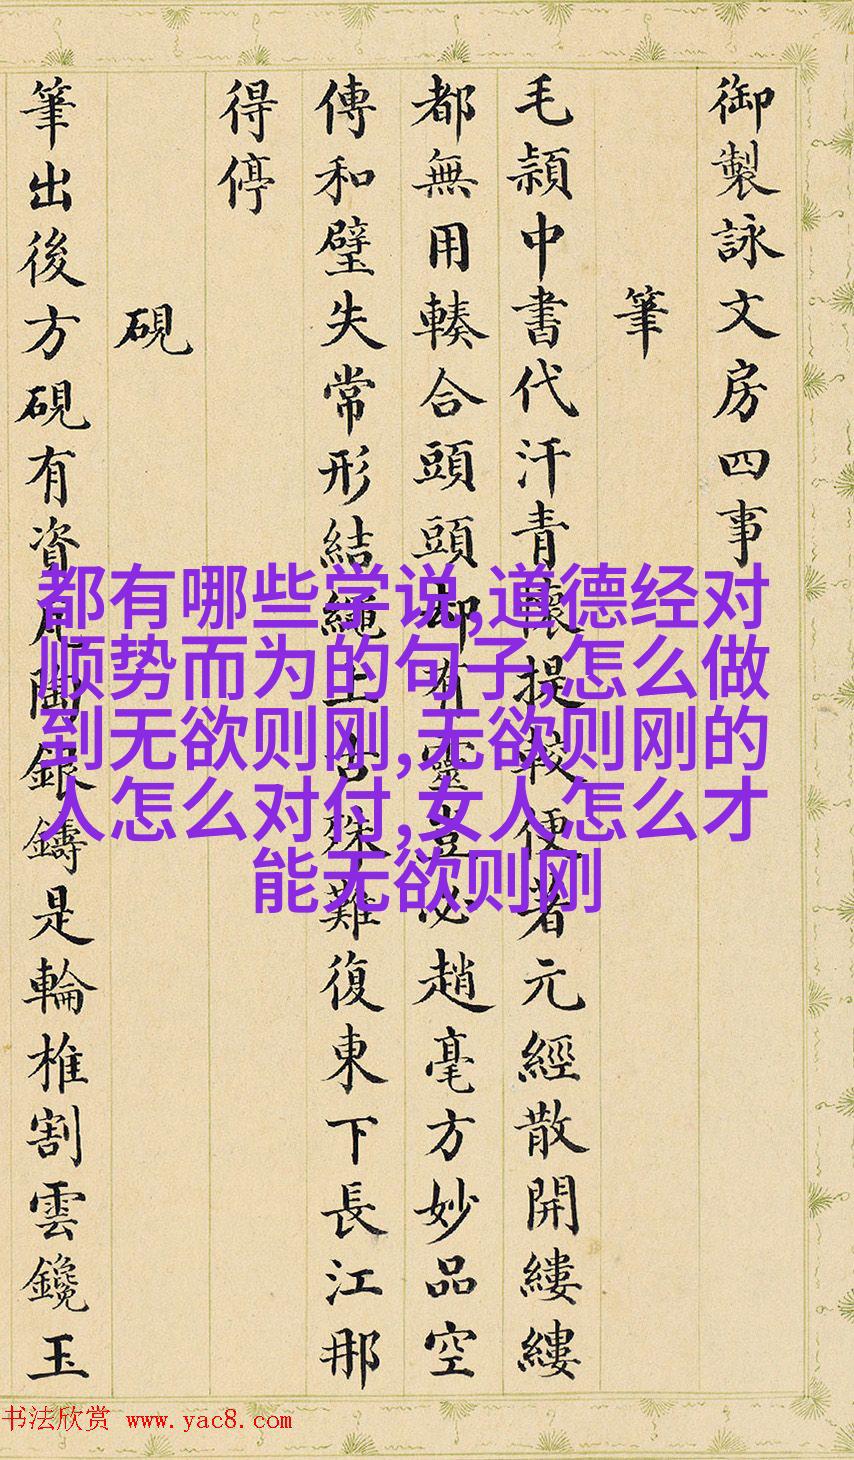 御製詠文房四事
筆
毛頴中書代汗青懷提較便著元經散開縷縷
都無用輳合頭頭却有靈豈必趙毫方妙品空
傳和璧失常形結繩上古殊難復東下長江那
得停
硯
筆出後方硯有資陶銀鑄是輪椎割雲鑱玉
都有哪些学说,道德经对
顺势而为的句子,怎么做
到无欲则刚,无欲则刚的
人怎么对付,女人怎么才
能无欲则刚
书法欣赏 www.yac8.com